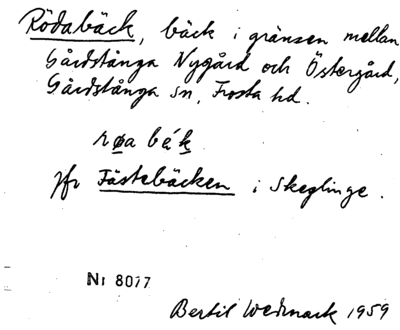 Rödabäck, bäck i gränsen mellan
Gårdstånga Nygård och Östergård,
Gårdstånga sn, Frosta hd.
røa bék
jfr Fästebäcken i Skeglinge.
Nr 8077
Bertil Wedmark 1959